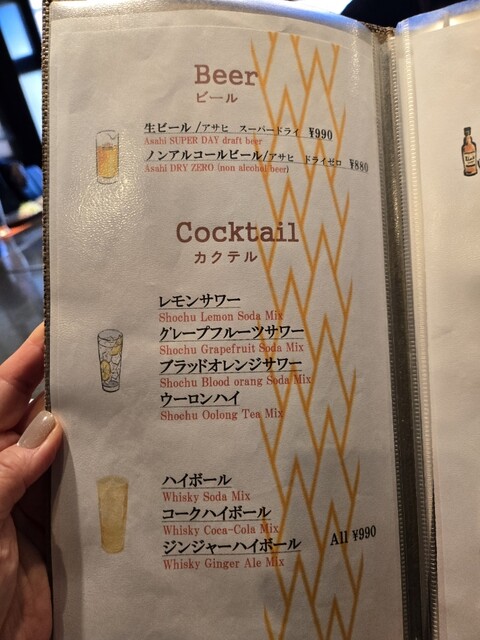 Beer
ビール
生ビール /アサヒ スーパードライ ¥990
Asahi SUPER DAY draft beer
ノンアルコールビール/アサヒ ドライゼロ ¥880
Asahi DRY ZERO (non alcohol beer)
Cocktail
カクテル
レモンサワー
Shochu Lemon Soda Mix
グレープフルーツサワー
Shochu Grapefruit Soda Mix
ブラッドオレンジサワー
Shochu Blood orang Soda Mix
ウーロンハイ
Shochu Oolong Tea Mix
ハイボール
Whisky Soda Mix
コークハイボール
Whisky Coca-Cola Mix
ジンジャーハイボール All ¥990
Whisky Ginger Ale Mix